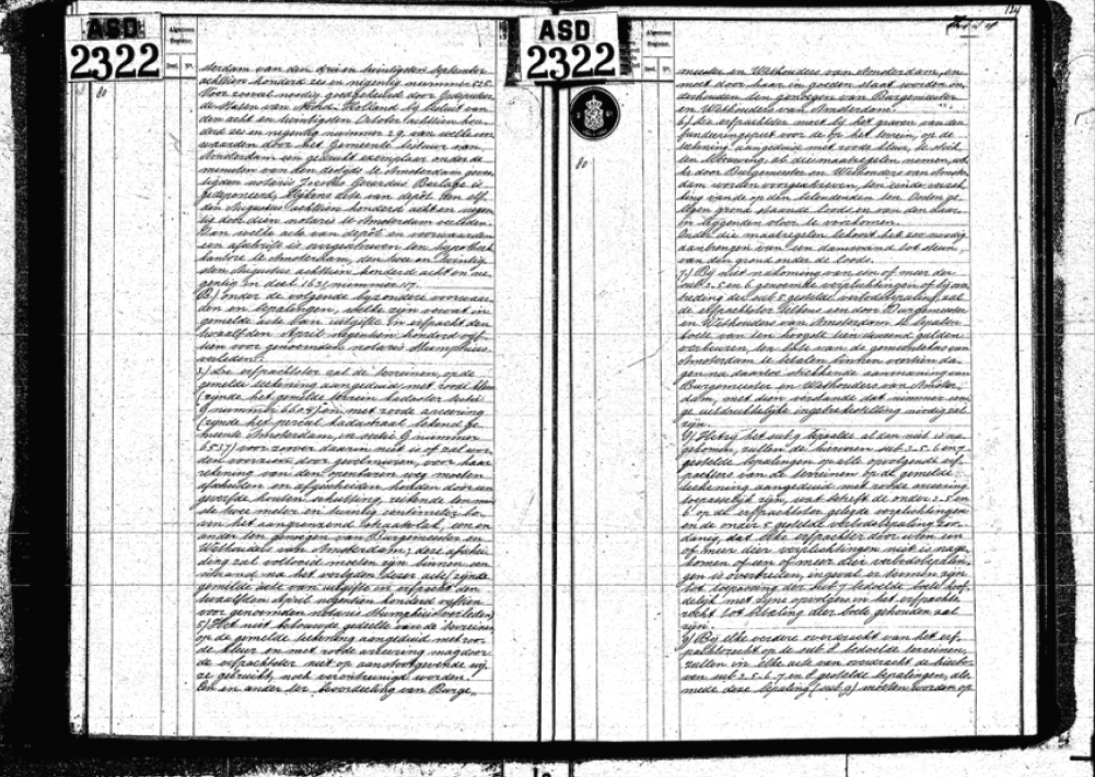 ASD
2322
Algemeen
Register.
Deel. No.
80
sterdam van den drie en twintigsten September
achttien honderd zes en negentig nummer
Voor zooveel noodig goedgekeurd door Gedeputeer
de Staten van Noord-Holland bij besluit van
den acht en twintigsten October achttien hon
derd zes en negentig nummer 29, van welke voor
waarden door het Gemeente bestuur van
Amsterdam een gedrukt exemplaar onder de
minuten van den destijds te Amsterdam geves
tigden notaris Jacobus Gerardus Berlage is
gedeponeerd, blijkens acte van depôt den elf
den Augustus achttien honderd acht en negen
tig door dien notaris te Amsterdam verleden.
Van welke acte van depôt en voorwaarden
een afschrift is overgeschreven ten hypotheek
kantore te Amsterdam, den twee en twintig
sten Augustus achttien honderd acht en ne
gentig in deel 1631 nummer 117.
B.) onder de volgende bijzondere voorwaar
den en bepalingen, welke zijn vervat in
gemelde acte van uitgifte in erfpacht den
twaalfden April negentien honderd vijf
tien voor genoemden notaris
verleden:
3.) De erfpachtster zal de terreinen, op de
gemelde teekening aangeduid met roode kleur
(zijnde het gemelde terrein kadaster sectie
nummer ) en met roode arceering
(zijnde het perceel kadastraal bekend ge
meente Amsterdam, in sectie nummer
6537) voor zoover daarin niet is of zal wor
den voorzien door gevelmuren, voor haar
rekening van den openbaren weg moeten
afscheiden en afgescheiden houden door een
geverfde houten schutting, reikende ten min
ste twee meter en twintig centimeter bo
ven het aangrenzend straatvlak, een en
ander ten genoegen van Burgemeester en
Wethouders van Amsterdam; deze afschei
ding zal voltooid moeten zijn binnen een
maand na het verlijden dezer acte (zijnde
gemelde acte van uitgifte in erfpacht den
twaalfden April negentien honderd vijftien
voor genoemden notaris verleden)
5) Het niet bebouwde gedeelte van de terreinen
op de gemelde teekening aangeduid met roo
de kleur en met roode arceering mag door
de erfpachtster niet op aanstootgevende wij
ze gebruikt, noch verontreinigd worden.
Een en ander ter beoordeeling van Burge„
ASD
2322
Algemeen
Register.
Deel. No.
80
meester en Wethouders van Amsterdam, en
moet door haar in goeden staat worden on
derhouden ten genoegen van Burgemeester
en Wethouders van Amsterdam.
6.) De erfpachtster moet bij het graven van den
fundeeringsput voor de op het terrein, op de
teekening aangeduid met roode kleur, te stich
ten bebouwing, al die maatregelen nemen, wel
ke door Burgemeester en Wethouders van Amster
dam worden voorgeschreven, ten einde verzak
king van de op den belendenden ten Oosten ge
legen grond staande loods en van den daar
in liggenden vloer te voorkomen.
Onder die maatregelen behoort het zoo noodig
aanbrengen van een damwand tot steun
van den grond onder de loods.
7.) Bij niet nakoming van een of meer der
sub 3. 5 en 6 genoemde verplichtingen of bij over
treding der sub 5 gestelde verbodsbepaling, zal
de erfpachtster telkens een door Burgemeester
en Wethouders van Amsterdam te bepalen
boete van ten hoogste een duizend gulden
verbeuren, ten bate van de gemeentekas van
Amsterdam te betalen binnen veertien da
gen na daartoe strekkende aanmaning van
Burgemeester en Wethouders van Amster
dam, met dien verstande dat nimmer eeni
ge uitdrukkelijke ingebrekestelling noodig zal
zijn.
8) Hetzij het sub 9 bepaalde al dan niet is na
gekomen, zullen de hiervoren sub 3. 5. 6 en 7
gestelde bepalingen op alle opvolgende erf
pachters van de terreinen op de gemelde
teekening aangeduid met roode arceering
toepasselijk zijn, wat betreft de onder 3. 5 en
6 op de erfpachtster gelegde verplichtingen
en de onder 5 gestelde verbodsbepaling zoo
danig, dat elke erfpachter door wien een
of meer dier verplichtingen niet is nage
komen of een of meer dier verbodsbepalin
gen is overtreden, ingeval er termen zijn
tot toepassing der sub 7 bedoelde boete hoof
delijk met zijne opvolgers in het erfpachts
recht tot betaling dier boete gehouden zal
zijn.
9) Bij elke verdere overdracht van het erf
pachtsrecht op de sub 8 bedoelde terreinen,
zullen in elke acte van overdracht de hierbo
ven sub 3. 5. 6. 7. en 8 gestelde bepalingen, als
mede deze bepaling (sub 9) moeten worden op